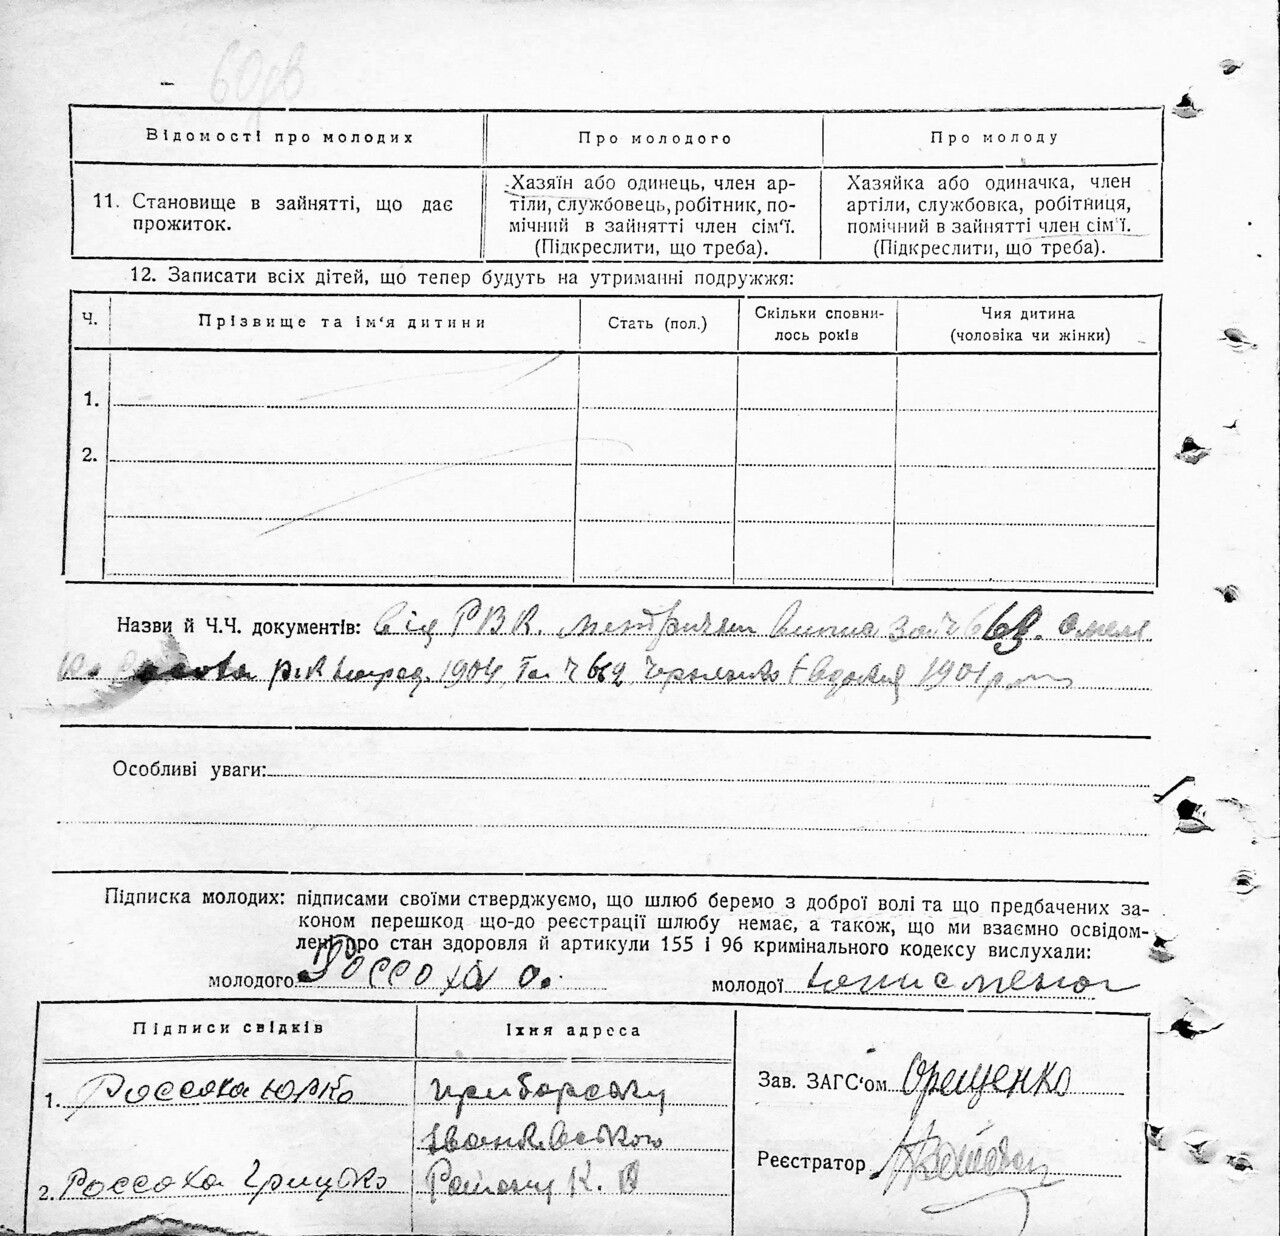 Відомості про молодих
Про молодого
Про молоду
11. Становище в зайнятті, що дає
прожиток.
Хазяїн або одинець, член ар-
тіли, службовець, робітник, по-
мічний в зайнятті член сім'ї.
(Підкреслити, що треба).
Хазяйка або одиначка, член
артіли, службовка, робітниця,
помічний в зайнятті член сім'ї.
(Підкреслити, що треба).
12. Записати всіх дітей, що тепер будуть на утриманні подружжя:
Ч.
Прізвище та ім'я дитини
Стать (пол.)
Скільки сповни-
лось років
Чия дитина
(чоловіка чи жінки)
1.
2.
Назви й Ч.Ч. документів: від РВК. метричний за ч 663.
1904 та ч 662 1901 р
Особливі уваги:
Підписка молодих: підписами своїми стверджуємо, що шлюб беремо з доброї волі та що предбачених за-
коном перешкод що-до реєстрації шлюбу немає, а також, що ми взаємно освідом-
лені про стан здоровля й артикули 155 і 96 кримінального кодексу вислухали:
молодого Россоха О.
молодої
Підписи свідків
Їхня адреса
1. Россоха Юрко
2. Россоха Грицько
Району К. О
Зав. ЗАГС'ом Орещенко
Реєстратор